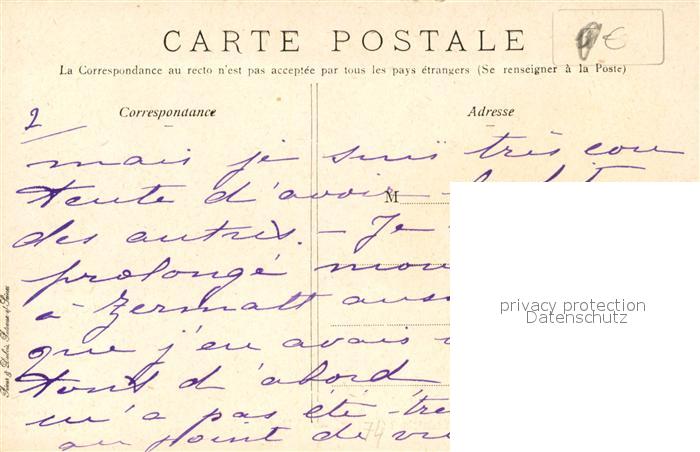 CARTE POSTALE
€
La Correspondance au recto n'est pas acceptée par tous les pays étrangers (Se renseigner à la Poste)
Correspondance
Adresse
2
mais je suis très con
tente d'avoir
M
des autres. – Je
prolongé mon
à Zermatt auss
que j'en avais
tout d'abord
n'a pas été tre
au point de vu
74
privacy protection
Datenschutz